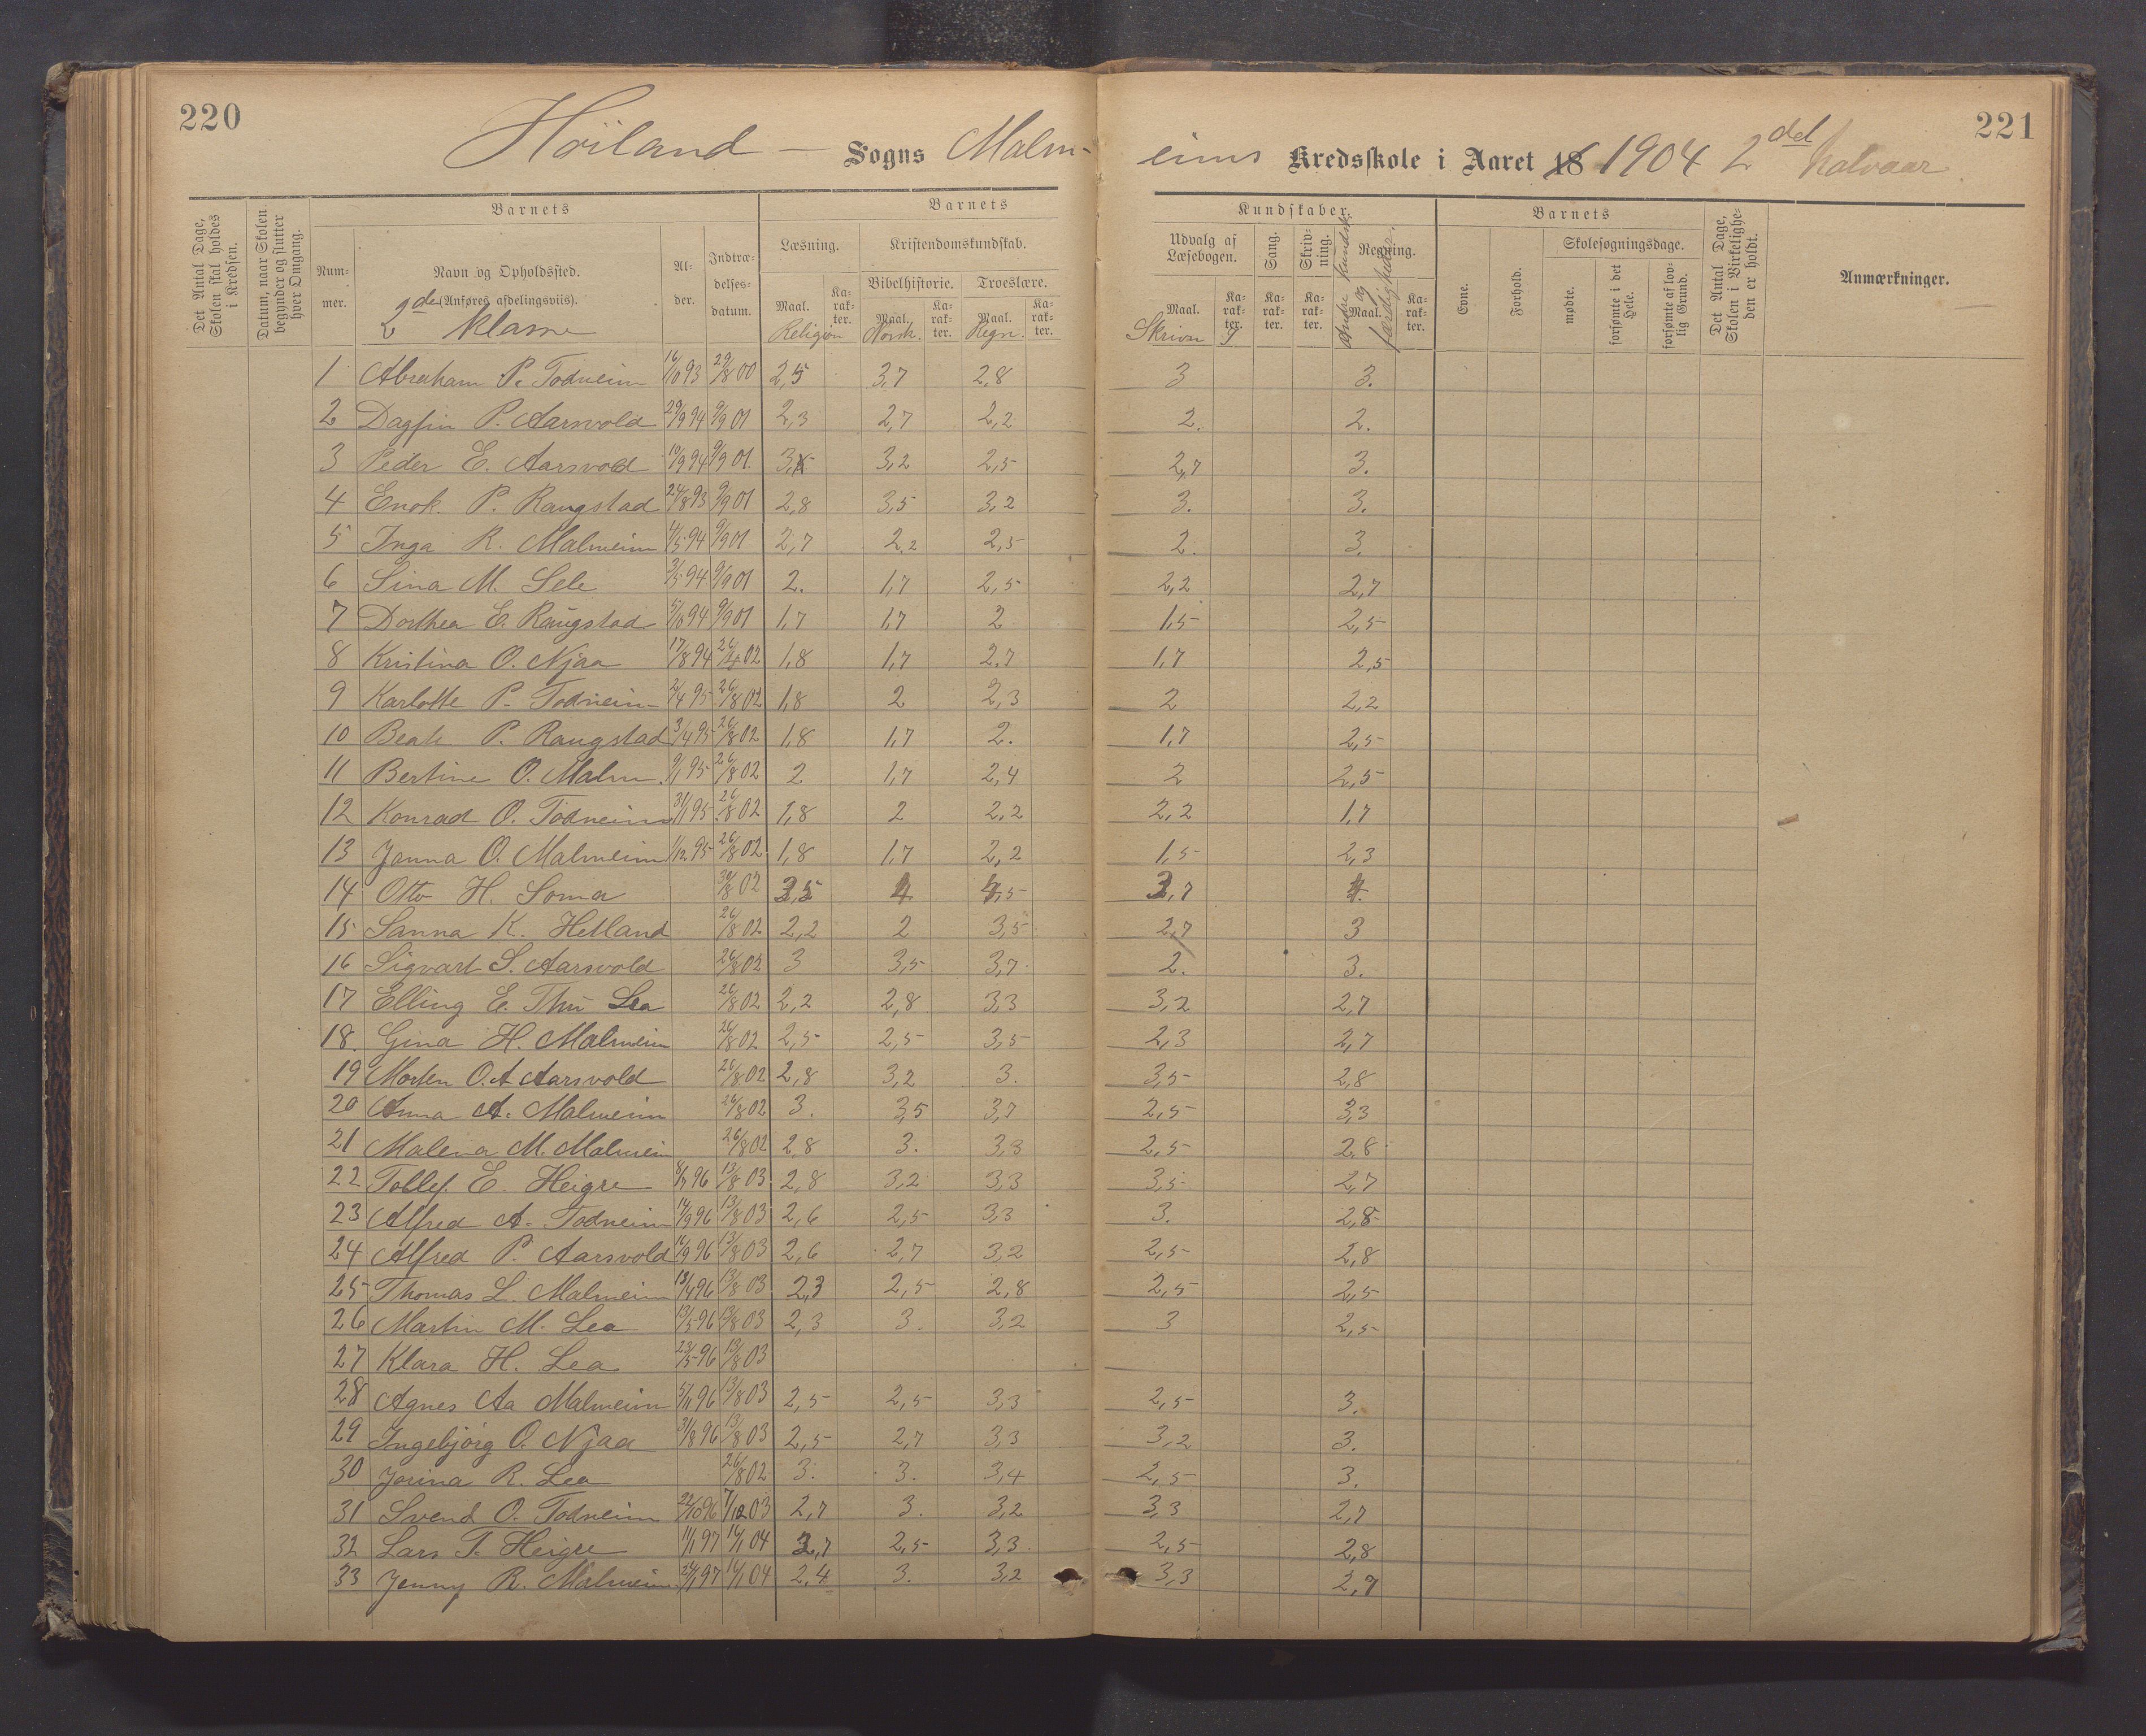 220
Höiland — Sogns Malm-
eims Kredsskole i Aaret 18 1904 2del halvaar
221
Det Antal Dage, Skolen skal holdes i Kredsen.
Datum, naar Skolen begynder og slutter hver Omgang.
Barnets
Nummer.
Navn og Opholdssted.
(Anføres afdelingsviis).
2de klasse
Alder.
Indtrædelsesdatum.
Barnets
Læsning.
Kristendomskundskab.
Bibelhistorie. Troeslære.
Maal. Karakter. Maal. Karakter. Maal. Karakter.
Religion Norsk. Regn.
Kundskaber.
Udvalg af Læsebogen. Sang. Skrivning. Regning.
Maal. Karakter. Karakter. Karakter. Maal. Karakter.
Skrivn
Andre kundsk. og færdigheder.
Barnets
Evne. Forhold. Skolesøgningsdage.
mødte. forsømte i det Hele. forsømte af lovlig Grund.
Det Antal Dage, Skolen i Virkeligheden er holdt.
Anmærkninger.
1 Abraham P. Todneim 16/10 93 29/8 00 2,5 3,7 2,8 3 3.
2 Dagfin P. Aarsvold 29/9 94 9/9 01 2,3 2,7 2,2 2. 2.
3 Peder E. Aarsvold 10/9 94 9/9 01. 3,2 2,5 2,7 3.
4 Enok. P. Raugstad 24/8 93 9/9 01 2,8 3,5 3,2 3. 3.
5 Inga R. Malmeim 4/5 94 9/9 01 2,7 2,2 2,5 2. 3.
6 Sina M. Sele 3/5 94 9/9 01 2. 1,7 2,5 2,2 2,7
7 Dorthea E. Raugstad 5/10 94 9/9 01 1,7 1,7 2 1,5 2,5
8 Kristina O. Njaa 17/8 94 26/4 02 1,8 1,7 2,7 1,7 2,5
9 Karlotte P. Todneim 2/4 95 26/8 02 1,8 2 2,3 2 2,2
10 Beate P. Raugstad 3/4 95 26/8 02 1,8 1,7 2. 1,7 2,5
11 Bertine O. Malm. 9/1 95 26/8 02 2 1,7 2,4 2 2,5
12 Konrad O. Todneim 31/1 95 26/8 02 1,8 2 2,2 2,2 1,7
13 Janna O. Malmeim 1/12 95 26/8 02 1,8 1,7 2,2 1,5 2,3
14 Otto H. Soma 30/8 02 3,5 4 4,5 3,7 4.
15 Sanna K. Hetland 26/8 02 2,2 2 3,5 2,7 3
16 Sigvart S. Aarsvold 26/8 02 3 3,5 3,7 2. 3.
17 Elling E. Thu Lea 26/8 02 2,2 2,8 3,3 3,2 2,7
18. Gina H. Malmeim 26/8 02 2,5 2,5 3,5 2,3 2,7
19 Morten O.A Aarsvold 26/8 02 2,8 3,2 3. 3,5 2,8
20 Anna A. Malmeim 26/8 02 3. 3,5 3,7 2,5 3,3
21 Malena M. Malmeim 26/8 02 2,8 3. 3,3 2,5 2,8
22 Tollef. E. Heigre 8/7 96 13/8 03 2,8 3,2 3,3 3,5 2,7
23 Alfred A. Todneim 14/9 96 13/8 03 2,6 2,5 3,3 3. 2,8
24 Alfred P. Aarsvold 16/9 96 13/8 03 2,6 2,7 3,2 2,5 2,8
25 Thomas L. Malmeim 18/4 96 13/8 03 2,3 2,5 2,8 2,5 2,5
26 Martin M. Lea 13/5 96 13/8 03 2,3 3. 3,2 3 2,5
27 Klara H. Lea 23/5 96 13/8 03
28 Agnes Aa Malmeim 5/11 96 13/8 03 2,5 2,5 3,3 2,5 3.
29 Ingebjörg O. Njaa 31/8 96 13/8 03 2,5 2,7 3,3 3,2 3.
30 Jorina R. Lea 26/8 02 3. 3. 3,4 2,5 3.
31 Svend O. Todneim 22/10 96 7/12 03 2,7 3. 3,2 3,3 2,7
32 Lars T. Heigre 11/1 97 16/1 04 2,7 2,5 3,3 2,5 2,8
33 Jenny R. Malmeim 24/1 97 16/1 04 2,4 3. 3,2 3,3 2,7